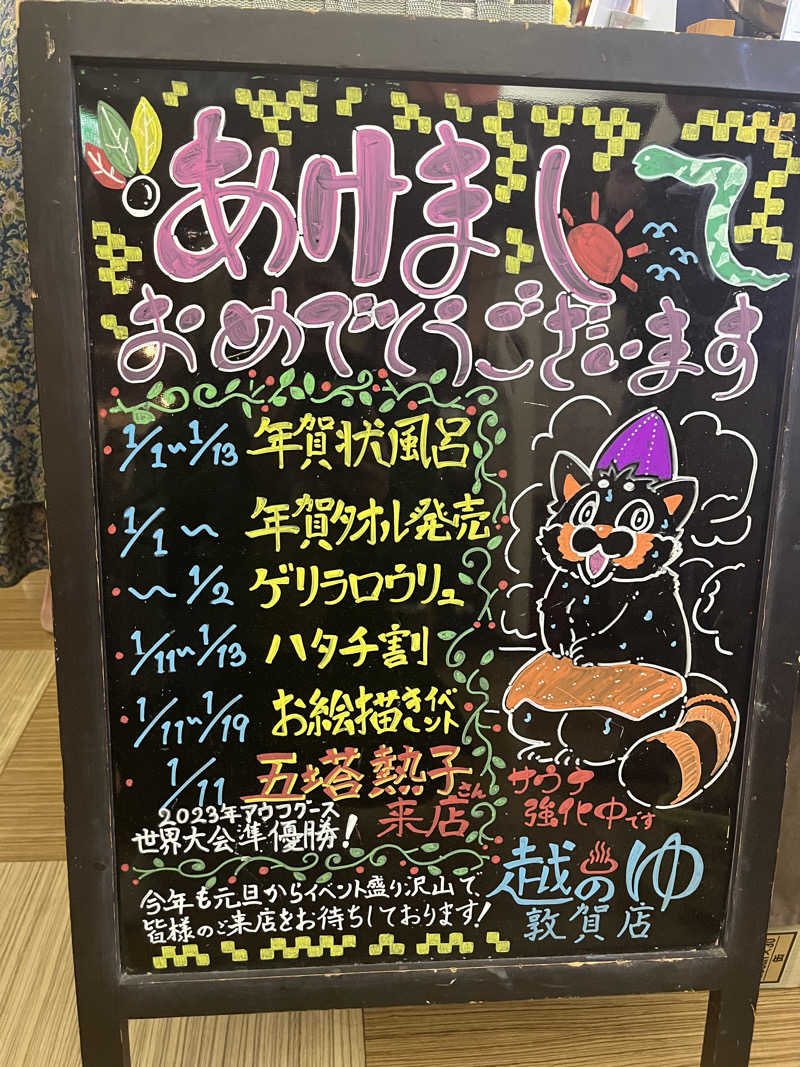 あけまして
おめでとうございます
1/1〜1/13 年賀状風呂
1/1〜 年賀タオル発売
〜1/2 ゲリラロウリュ
1/11〜1/13 ハタチ割
1/11〜1/19 お絵描きイベント
1/11 五塔熱子さん
来店
2023年アウフグース
世界大会準優勝!
サウナ
強化中です
今年も元旦からイベント盛り沢山で、
皆様のご来店をお待ちしております!
越のゆ
敦賀店